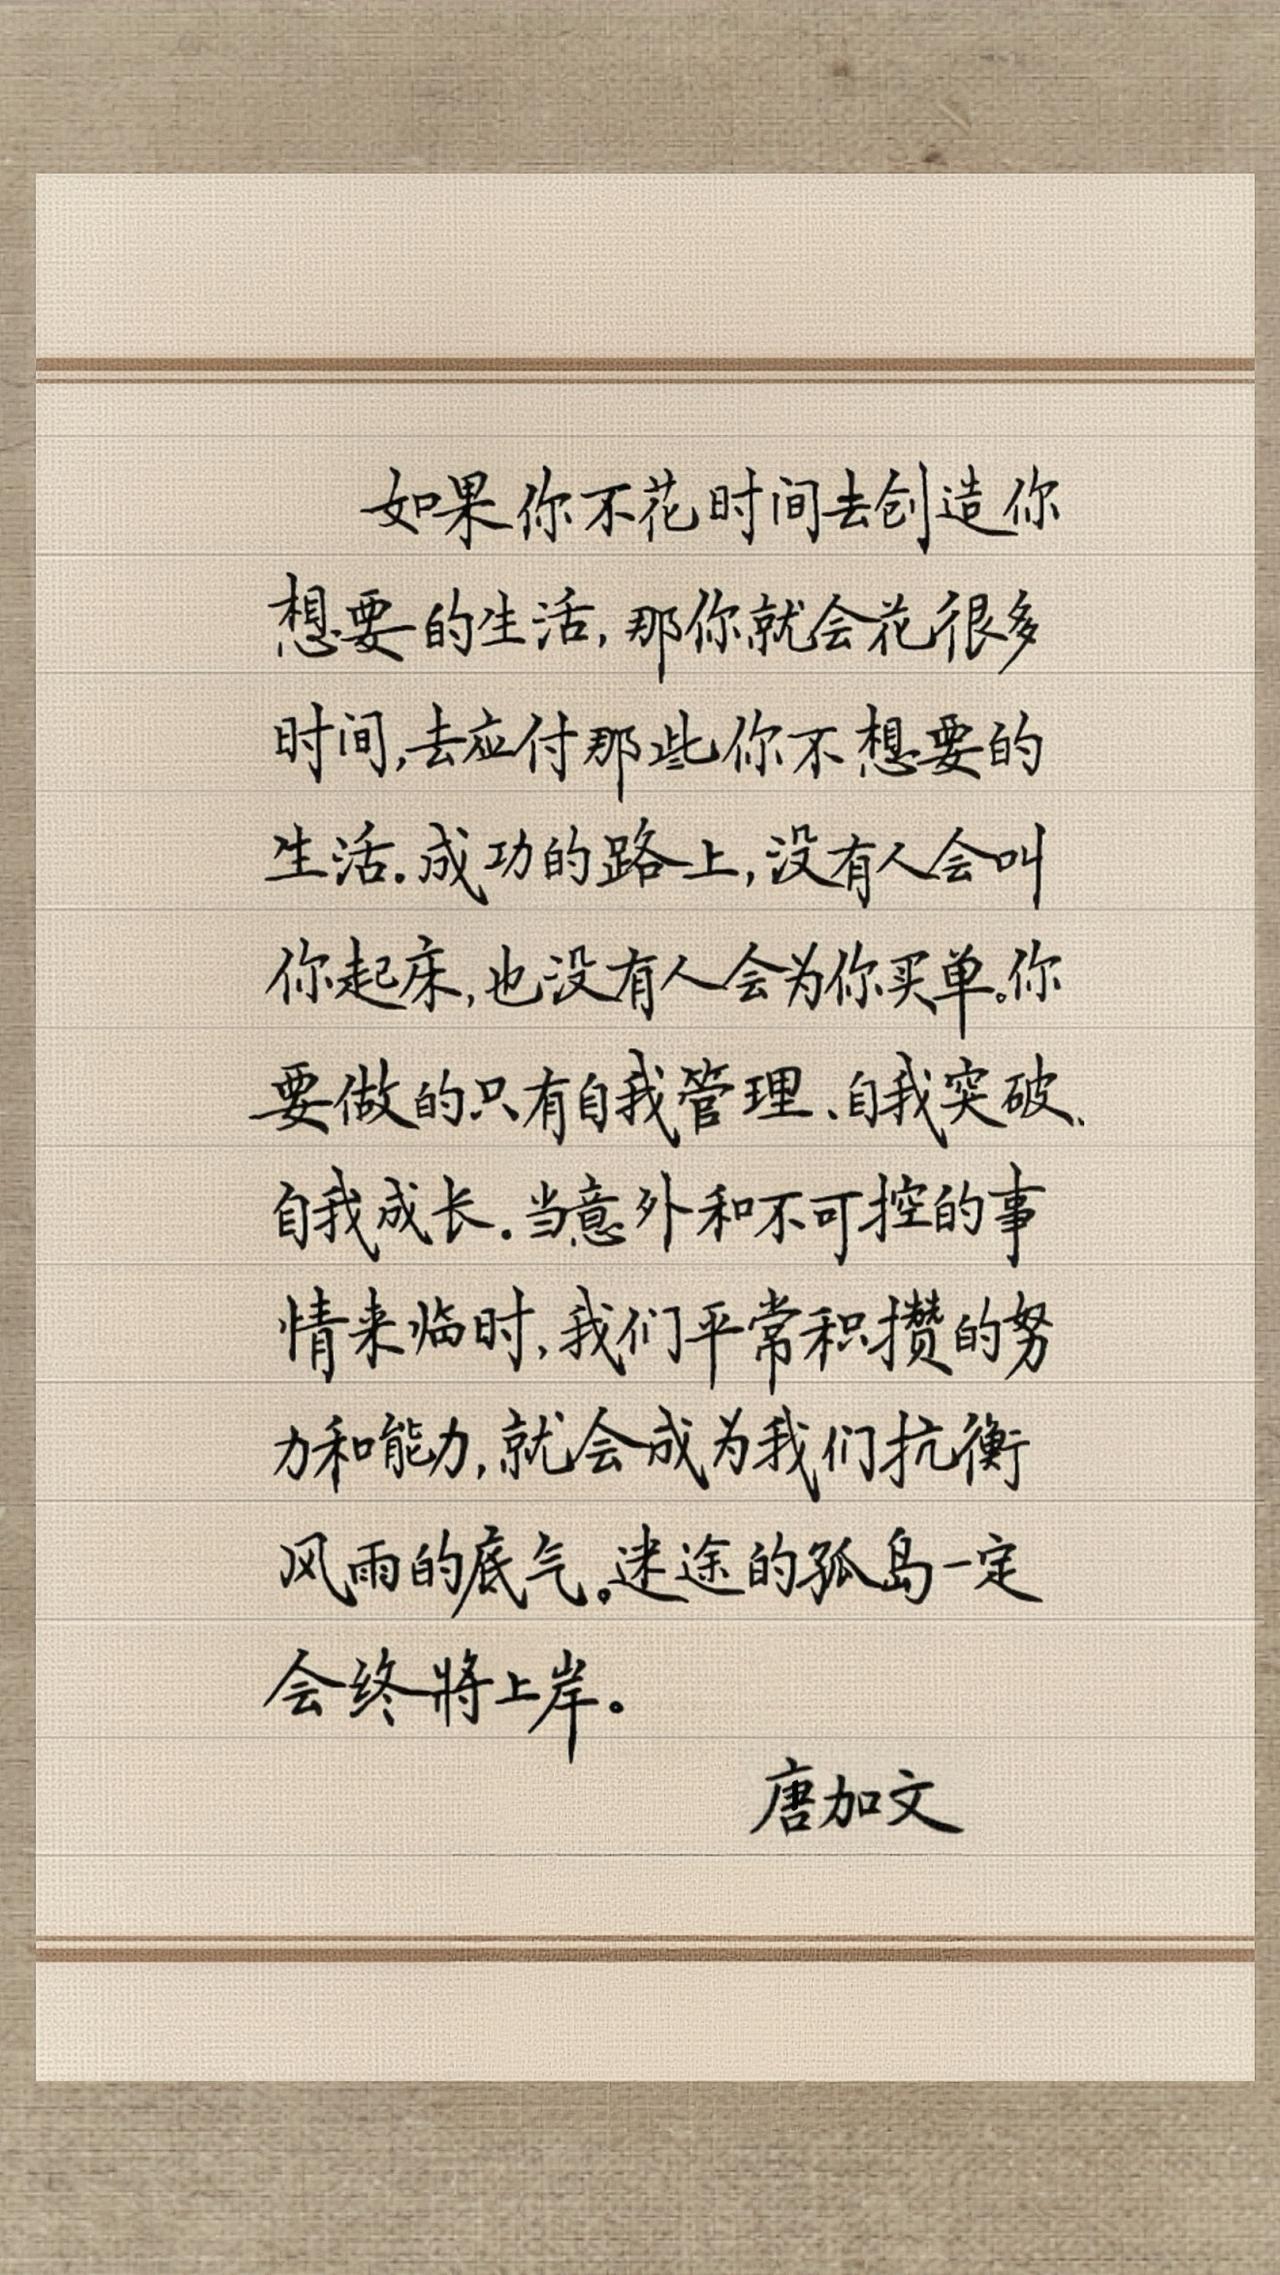 如果你不花时间去创造你
想要的生活,那你就会花很多
时间,去应付那些你不想要的
生活.成功的路上,没有人会叫
你起床,也没有人会为你买单。你
要做的只有自我管理、自我突破、
自我成长.当意外和不可控的事
情来临时,我们平常积攒的努
力和能力,就会成为我们抗衡
风雨的底气。迷途的孤岛一定
会终将上岸。
唐加文